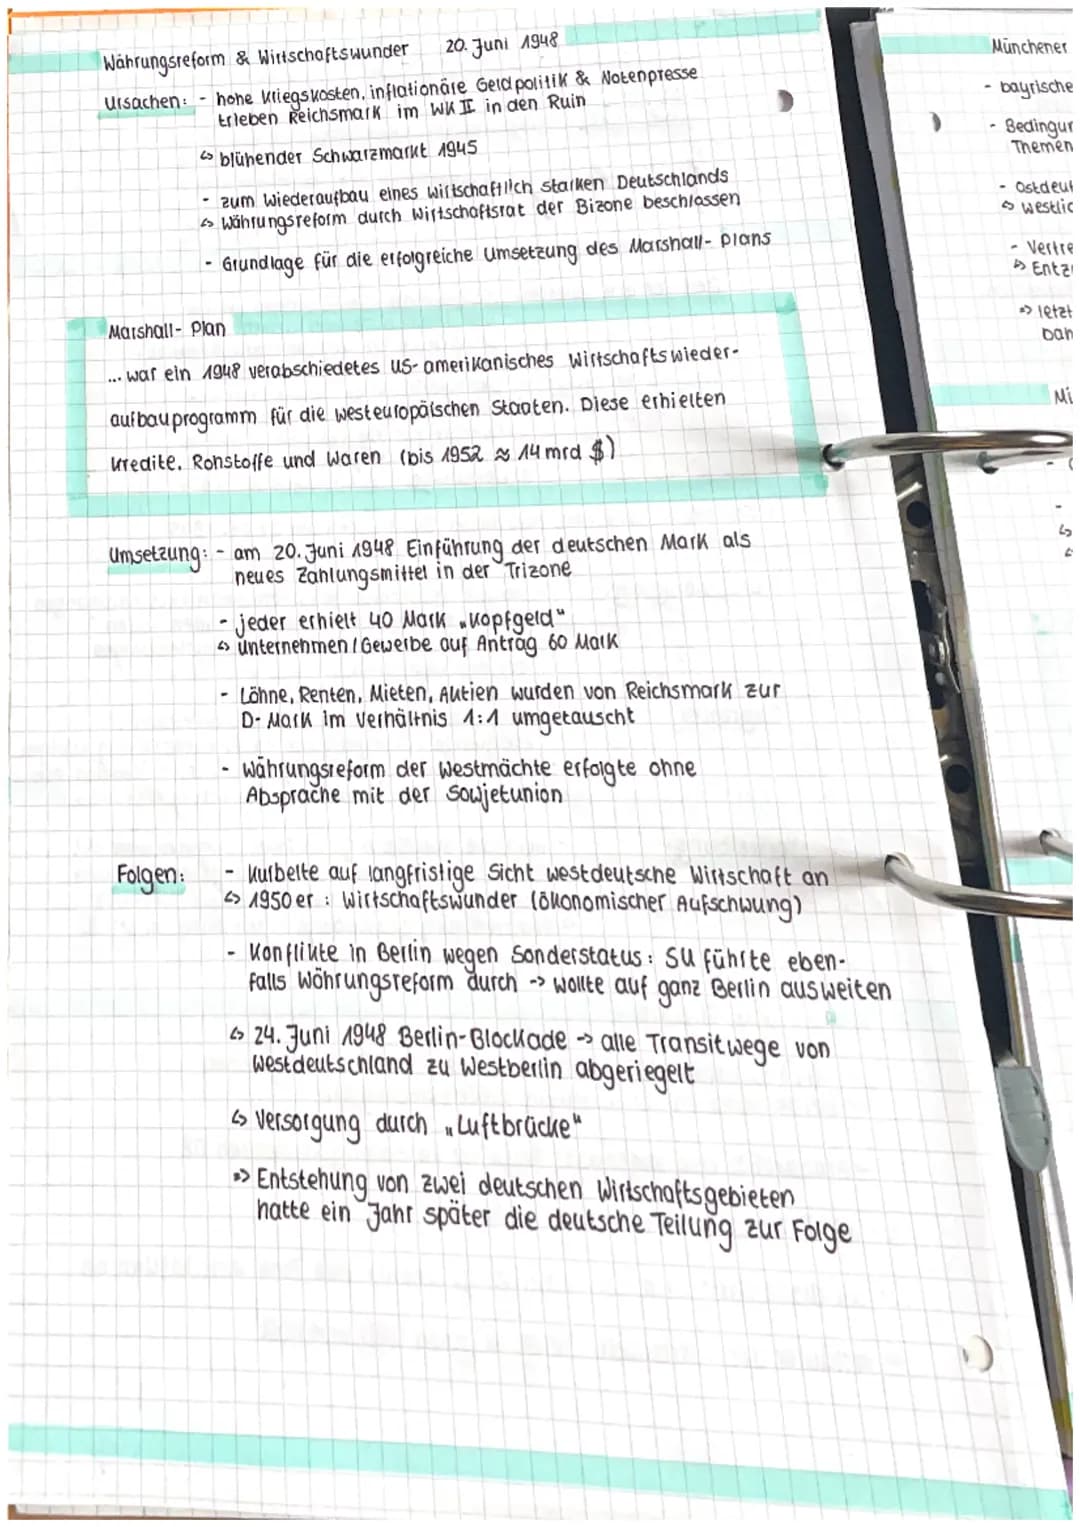 Währungsreform & Wirtschaftswunder 20. Juni 1948
Ursachen: - hohe Kriegskosten, inflationäre Geldpolitik & Notenpresse
trieben Reichsmark im WK II in den Ruin
↳ blühender Schwarzmarkt 1945
- zum Wiederaufbau eines wirtschaftlich starken Deutschlands
↳ Währungsreform durch Wirtschaftsrat der Bizone beschlossen
- Grundlage für die erfolgreiche Umsetzung des Marshall-Plans
Marshall-Plan
... war ein 1948 verabschiedetes US-amerikanisches Wirtschaftswieder-
aufbauprogramm für die westeuropäischen Staaten. Diese erhielten
Kredite, Rohstoffe und Waren (bis 1952 ≈ 14 mrd $)
Umsetzung: - am 20. Juni 1948 Einführung der deutschen Mark als
neues Zahlungsmittel in der Trizone
- jeder erhielt 40 Mark „Kopfgeld"
↳ Unternehmen / Gewerbe auf Antrag 60 Mark
- Löhne, Renten, Mieten, Aktien wurden von Reichsmark zur
D-Mark im Verhältnis 1:1 umgetauscht
- Währungsreform der Westmächte erfolgte ohne
Absprache mit der Sowjetunion
Folgen: - Kurbelte auf langfristige Sicht westdeutsche Wirtschaft an
↳ 1950er: Wirtschaftswunder (ökonomischer Aufschwung)
- Konflikte in Berlin wegen Sonderstatus: SU führte eben-
falls Währungsreform durch -> wollte auf ganz Berlin ausweiten
↳ 24. Juni 1948 Berlin-Blockade -> alle Transitwege von
Westdeutschland zu Westberlin abgeriegelt
↳ Versorgung durch „Luftbrücke"
=> Entstehung von zwei deutschen Wirtschaftsgebieten
hatte ein Jahr später die deutsche Teilung zur Folge
Münchener
- bayrische
- Bedingun
Themen
- Ostdeut
↳ westlic
- Vertre
↳ Entz
=> letzt
Mi